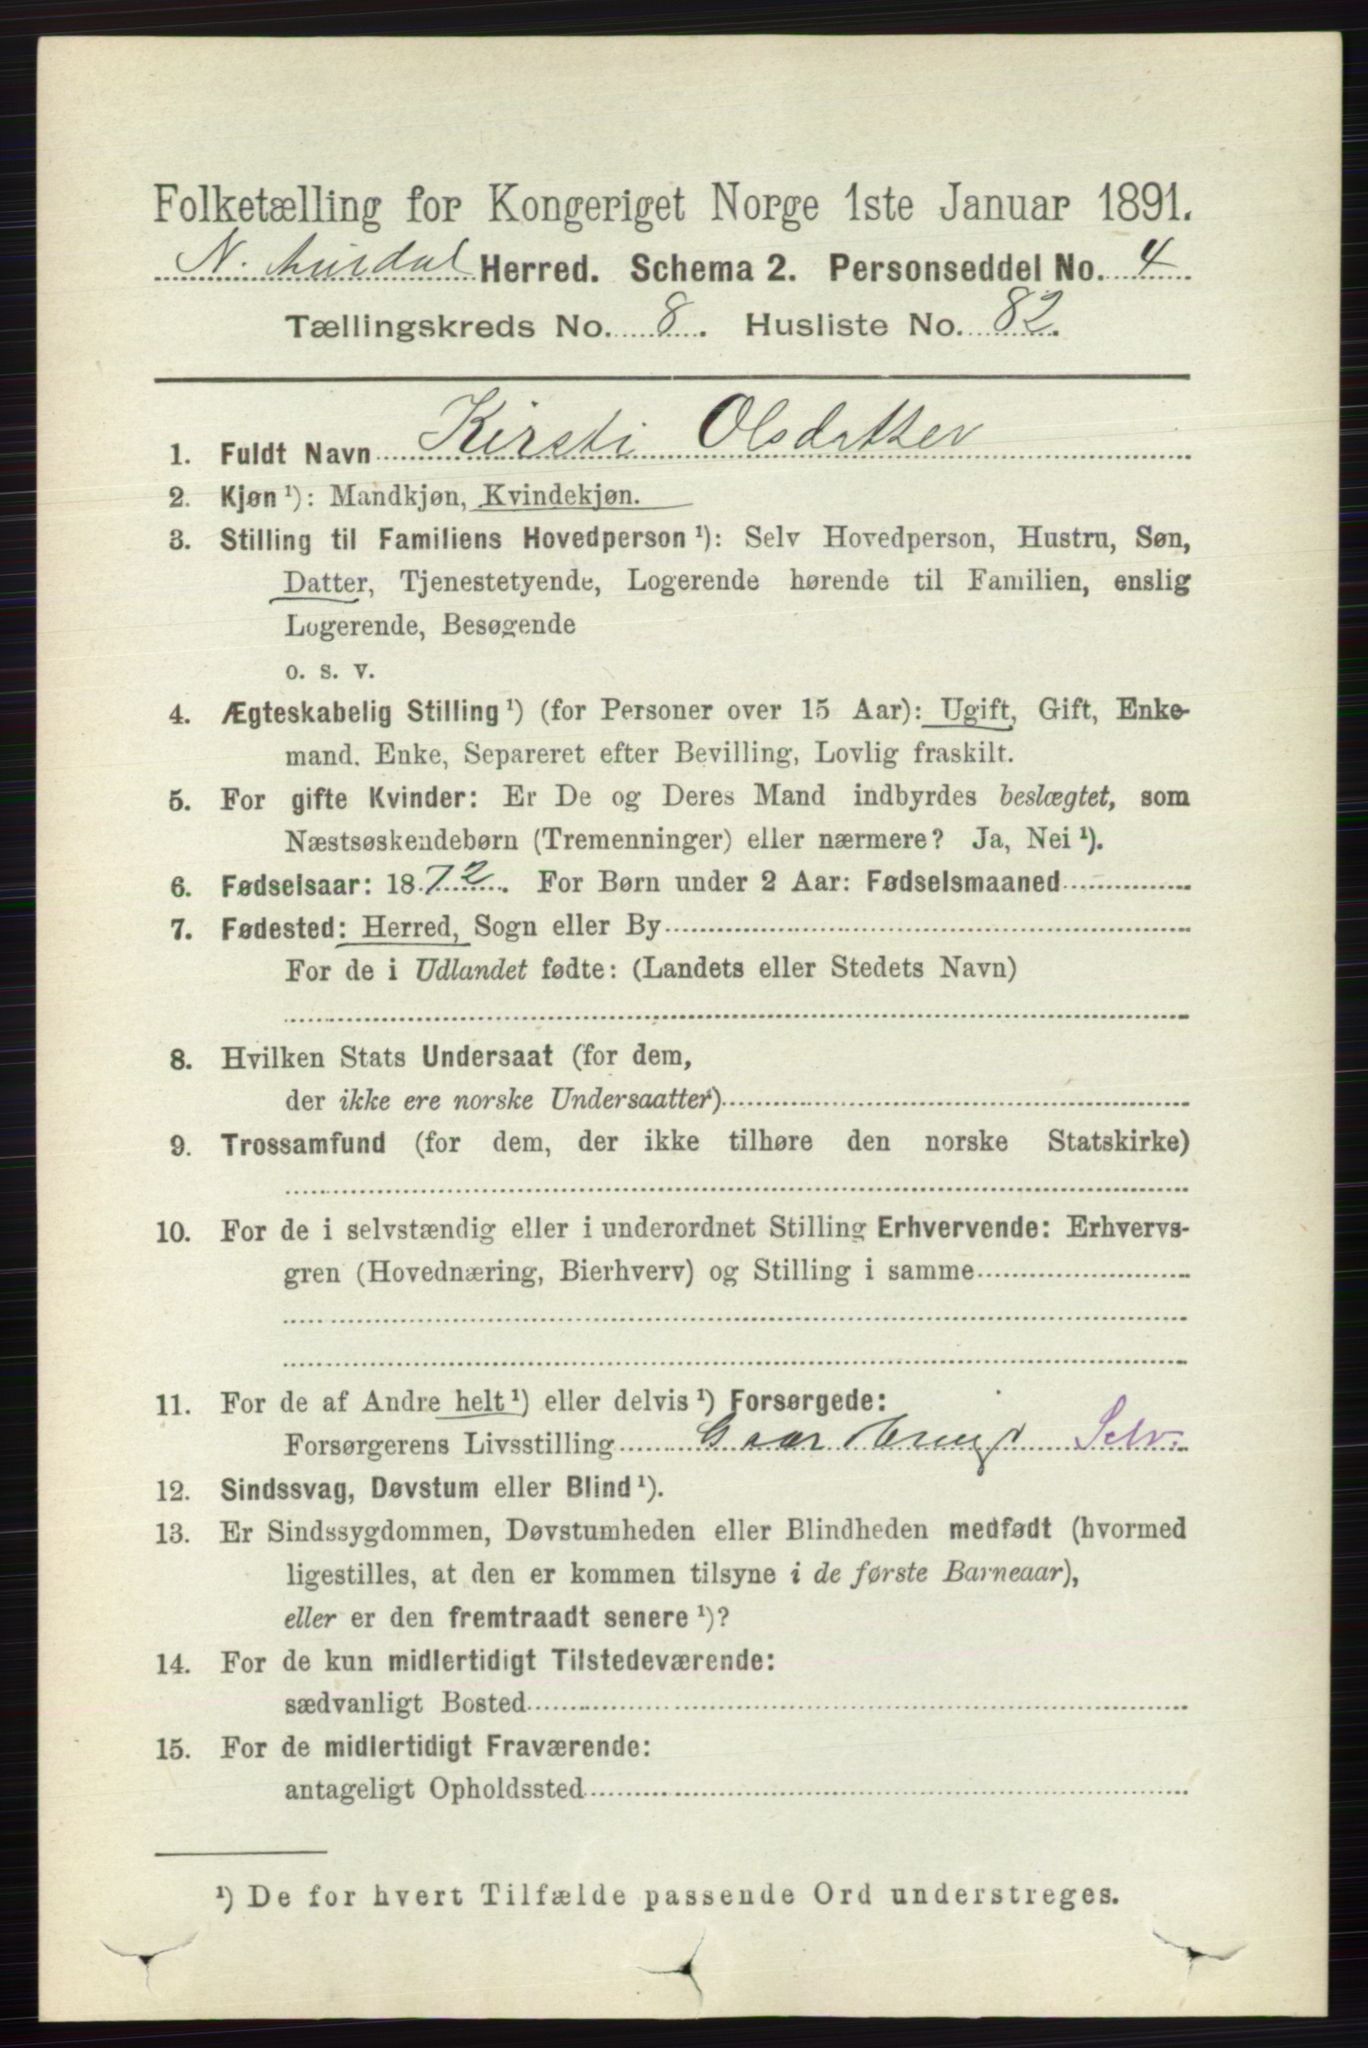 Folketælling for Kongeriget Norge 1ste Januar 1891.
N. Aurdal Herred. Schema 2. Personseddel No. 4
Tællingskreds No. 8. Husliste No. 82.
1. Fuldt Navn Kirsti Olsdatter
2. Kjøn ¹): Mandkjøn, Kvindekjøn.
3. Stilling til Familiens Hovedperson ¹): Selv Hovedperson, Hustru, Søn,
Datter, Tjenestetyende, Logerende hørende til Familien, enslig
Logerende, Besøgende
o. s. v.
4. Ægteskabelig Stilling ¹) (for Personer over 15 Aar): Ugift, Gift, Enke-
mand. Enke, Separeret efter Bevilling, Lovlig fraskilt.
5. For gifte Kvinder: Er De og Deres Mand indbyrdes beslægtet, som
Næstsøskendebørn (Tremenninger) eller nærmere? Ja, Nei ¹).
6. Fødselsaar: 1872. For Børn under 2 Aar: Fødselsmaaned
7. Fødested: Herred, Sogn eller By
For de i Udlandet fødte: (Landets eller Stedets Navn)
8. Hvilken Stats Undersaat (for dem,
der ikke ere norske Undersaatter)
9. Trossamfund (for dem, der ikke tilhøre den norske Statskirke)
10. For de i selvstændig eller i underordnet Stilling Erhvervende: Erhvervs-
gren (Hovednæring, Bierhverv) og Stilling i samme
11. For de af Andre helt ¹) eller delvis ¹) Forsørgede:
Forsørgerens Livsstilling Gaardbrug Selv.
12. Sindssvag, Døvstum eller Blind ¹).
13. Er Sindssygdommen, Døvstumheden eller Blindheden medfødt (hvormed
ligestilles, at den er kommen tilsyne i de første Barneaar),
eller er den fremtraadt senere ¹)?
14. For de kun midlertidigt Tilstedeværende:
sædvanligt Bosted
15. For de midlertidigt Fraværende:
antageligt Opholdssted
¹) De for hvert Tilfælde passende Ord understreges.